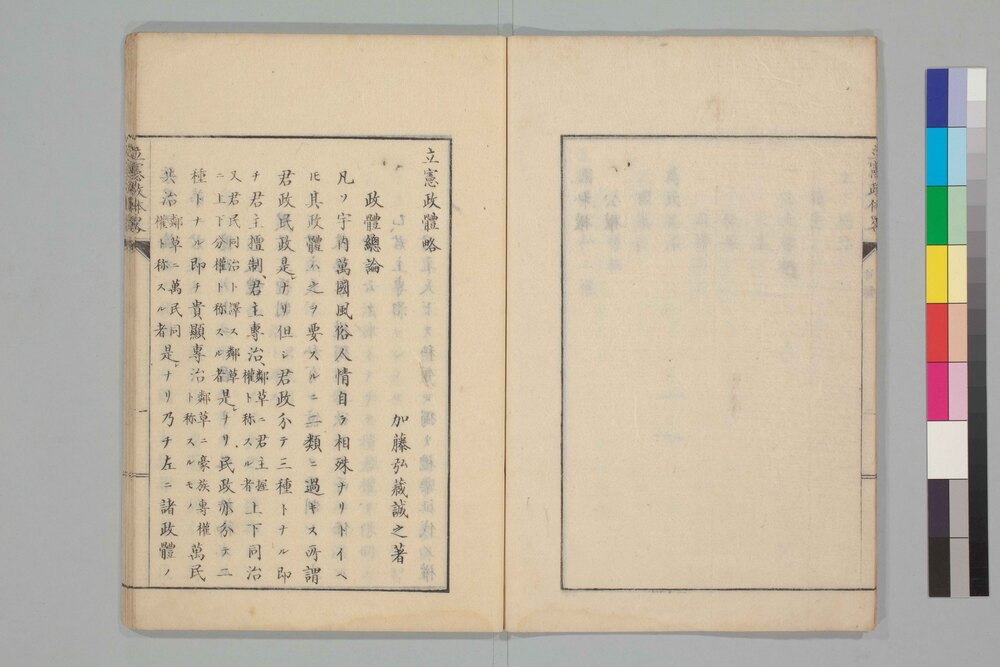 立憲政體略
立憲政體略
加藤弘藏誠之著
政體總論
凡ソ宇内萬國風俗人情自ラ相殊ナリトイヘ
𪜈其政體ハ之ヲ要スルニ二類ニ過キス所謂
君政民政是ナリ但シ君政分テ三種トナル即
チ君主擅制、君主專治、鄰草ニ君主握權ト称スル者上下同治
又君民同治ト譯ス鄰草ニ上下分權ト称スル者是ナリ民政亦分テ二
種トナル即チ貴顯專治鄰草ニ豪族專權ト称スルモノ萬民
共治鄰草ニ萬民同權ト称スル者是ナリ乃チ左ニ諸政體ノ
立憲政体畧